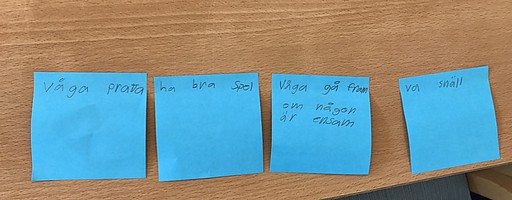 våga prata
ha bra spel
våga gå fram
om någon
är ensam
va snäll